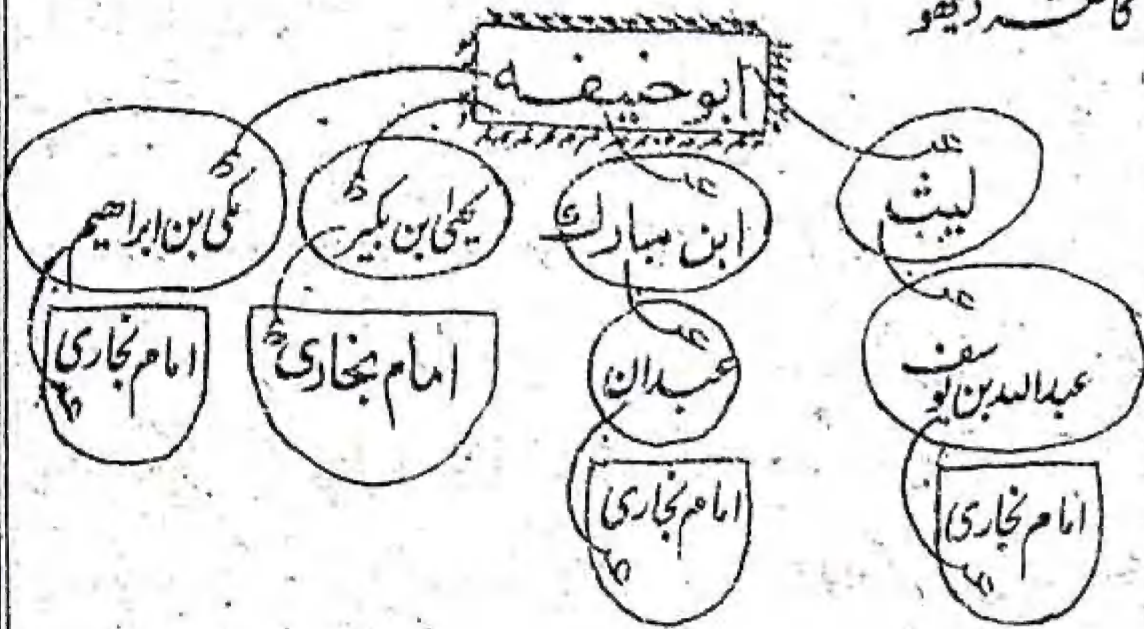 کا نقشہ دیکھو
ابو حنیفہ
لیث
ابن مبارک
یحیٰی ابن بکیر
مکی بن ابراہیم
عبداللہ بن یوسف
عبدان
امام بخاری
امام بخاری
امام بخاری
امام بخاری